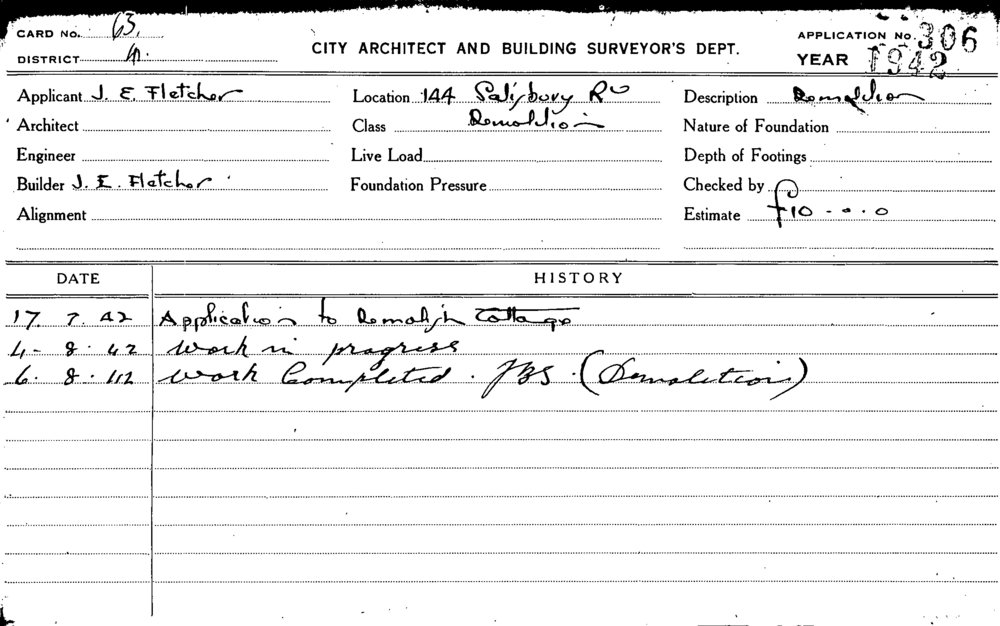 CARD No. 63.
DISTRICT
CITY ARCHITECT AND BUILDING SURVEYOR'S DEPT.
APPLICATION No. 306
YEAR 1942
Applicant J. E. Fletcher
Location 144 Salisbury Rd
Description Demolition
Architect
Class Demolition
Nature of Foundation
Engineer
Live Load
Depth of Footings
Builder J. E. Fletcher
Foundation Pressure
Checked by
Alignment
Estimate £10 - 0 . 0
DATE HISTORY
17. 7. 42 Application to Demolish Cottage
4 - 8 . 42 Work in progress
6. 8 . 42 Work Completed . JBS . (Demolition)